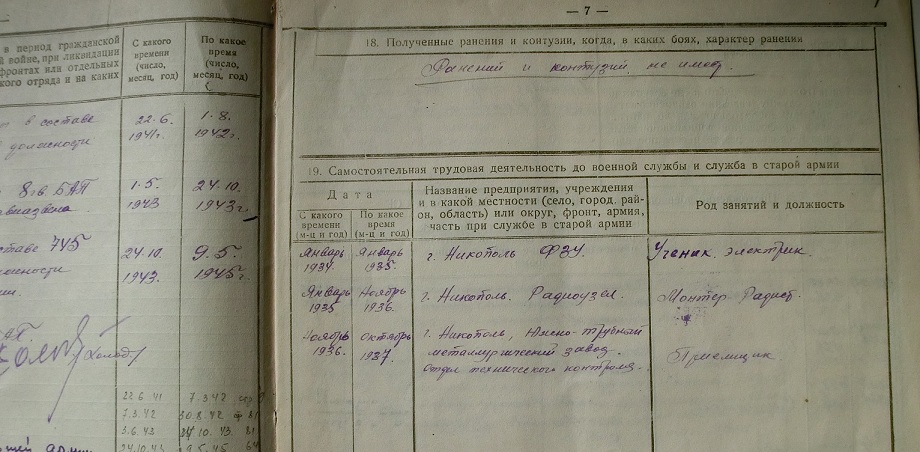 в период гражданской
й войне, при ликвидации
фронтах или отдельных
ского отряда и на каких
С какого
времени
(число,
месяц, год)
По какое
время
(число,
месяц, год)
в составе
22.6.
1941г.
1.8.
1942г.
должности
8 гв. БАП
1.5.
1943
24.10.
1943г.
авиазвена.
ставе 745
24.10.
1943.
9.5.
1945г.
22 6 41
7.3.42
7.3.42
30.8.42
3.6 43
24 10. 43.
24.10.43
9.5.45
— 7 —
18. Полученные ранения и контузии, когда, в каких боях, характер ранения
Ранений и контузий не имею.
19. Самостоятельная трудовая деятельность до военной службы и служба в старой армии
Дата
С какого
времени
(м-ц и год)
По какое
время
(м-ц и год)
Название предприятия, учреждения
и в какой местности (село, город, рай-
он, область) или округ, фронт, армия,
часть при службе в старой армии
Род занятий и должность
Январь
1934.
Январь
1935.
г. Никополь ФЗУ.
Ученик электрик.
Январь
1935
Ноябрь
1936.
г. Никополь. Радиоузел.
Монтер Радист.
Ноябрь
1936.
Октябрь
1937.
г. Никополь, Южно-трубный
металлургический завод.
отдел технического контроля.
Приемщик